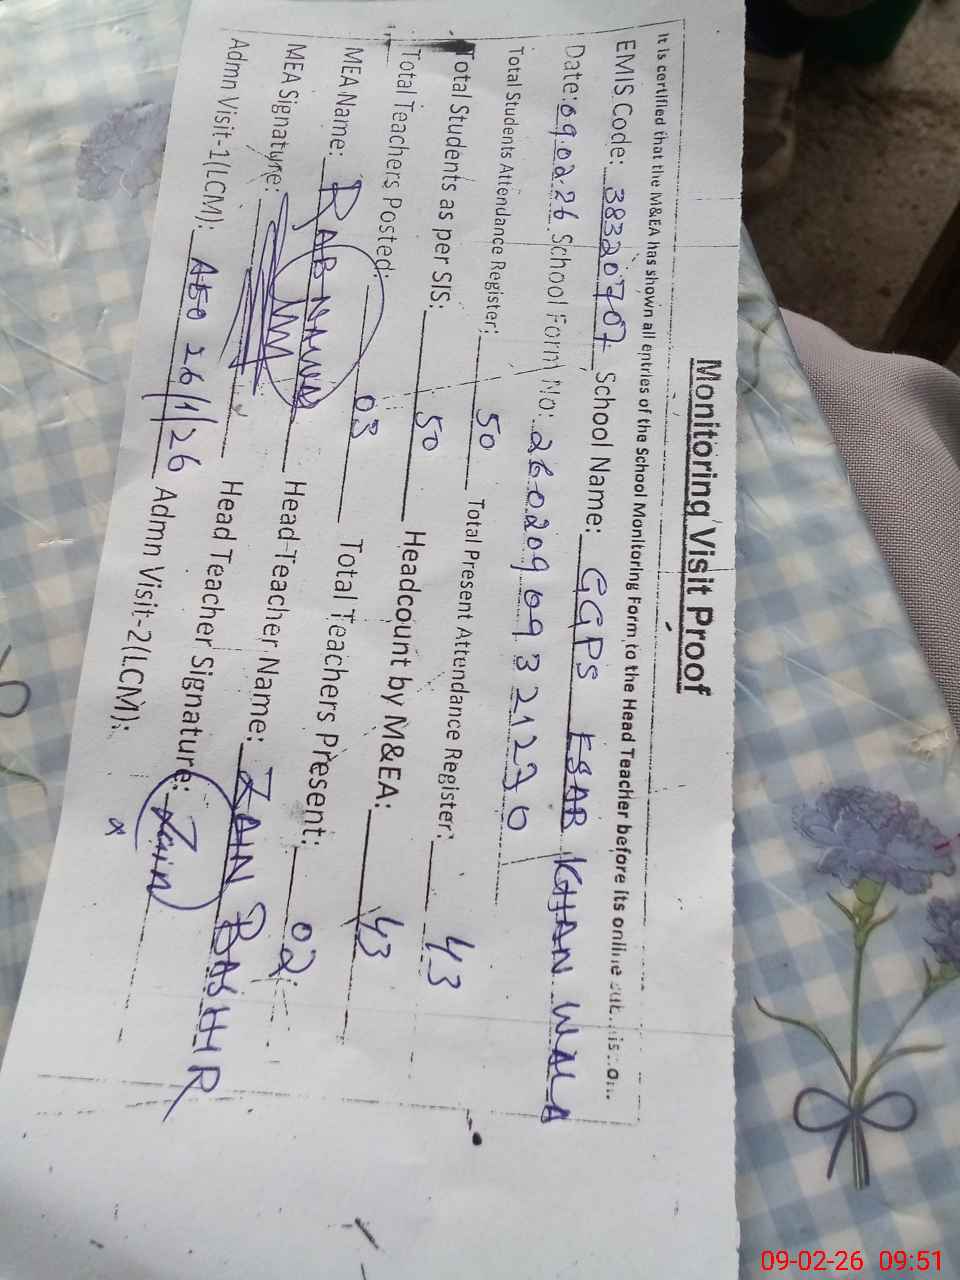 Monitoring Visit Proof
It is certified that the M&EA has shown all entries of the School Monitoring Form to the Head Teacher before its online
EMIS Code: 38320707 School Name: GGPS ESAB KHAN WALA
Date: 09.02.26 School Form No: 26020909321230
Total Students Attendance Register: 50 Total Present Attendance Register: 43
Total Students as per SIS: 50 Headcount by M&EA: 43
Total Teachers Posted: 03 Total Teachers Present: 02
MEA Name: RAB NAWAZ Head Teacher Name: ZAIN BASHIR
MEA Signature: Head Teacher Signature: Zain
Admn Visit-1(LCM): 26/1/26 Admn Visit-2(LCM): x
09-02-26 09:51